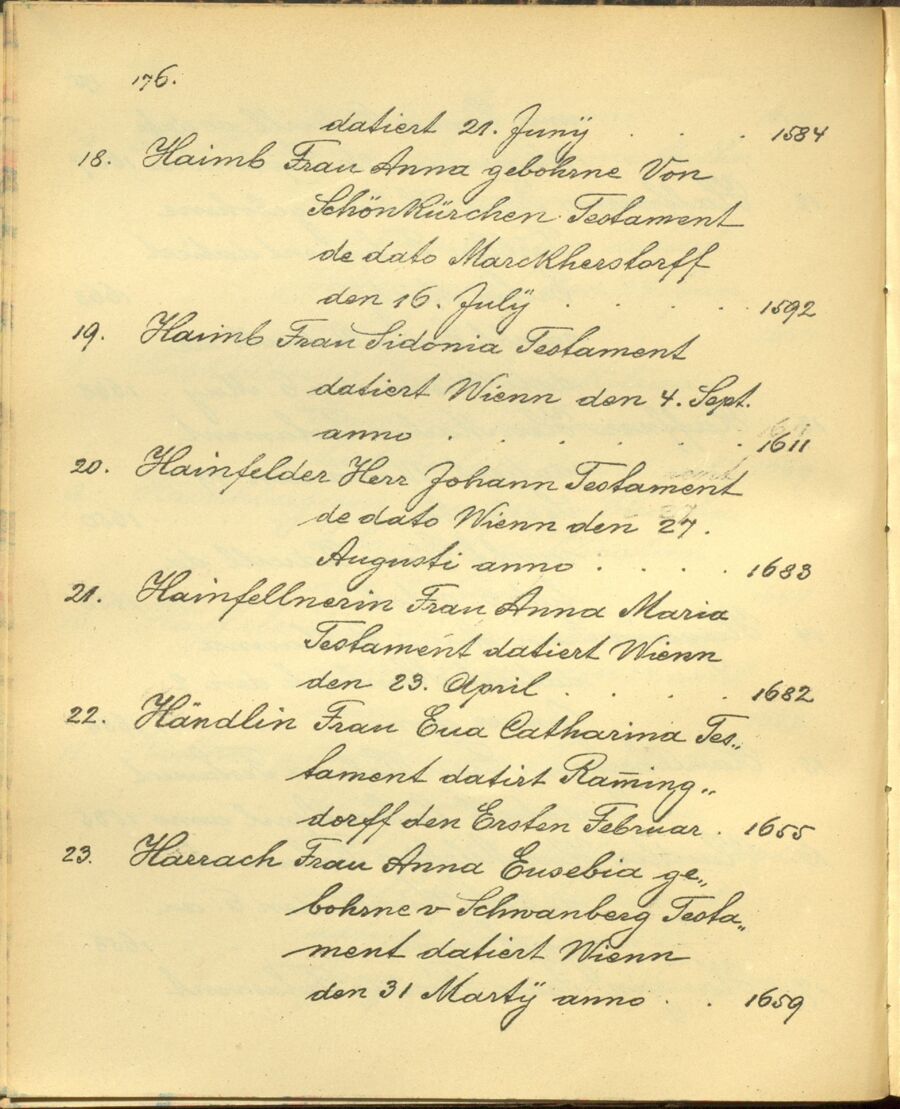 176.
datiert 21. Junÿ . . . 1584
18. Haimb Frau Anna gebohrne Von
Schönkürchen Testament
de dato Marckherstorff
den 16. Julÿ . . . . 1592
19. Haimb Frau Sidonia Testament
datiert Wienn den 4. Sept.
anno . . . . . . 1611
20. Hainfelder Herr Johann Testament
de dato Wienn den 27.
Augusti anno . . . . 1683
21. Hainfellnerin Frau Anna Maria
Testament datiert Wienn
den 23. April . . . . 1682
22. Händlin Frau Eua Catharina Tes„
tament datirt Ram̅ing„
dorff den Ersten Februar . 1655
23. Harrach Frau Anna Eusebia ge„
bohrne v Schwanberg Testa„
ment datiert Wienn
den 31 Martÿ anno . . 1659